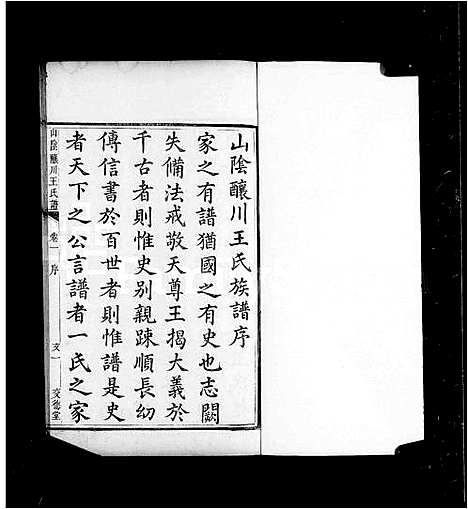 山陰釀川王氏族譜序
家之有譜猶國之有史也志闕
失備法戒敬天尊王揭大義於
千古者則惟史别親踈順長幼
傳信書於百世者則惟譜是史
者天下之公言譜者一氏之家
山陰釀川王氏譜
卷一
序
文一